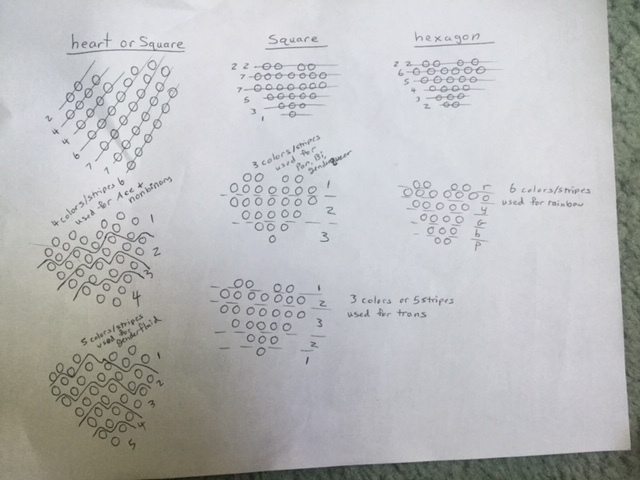 heart or Square
Square
hexagon
2
4
4
6
7
7
2 2
7
7
5
3
1
2 2
6
5
4
3
2
4 colors/stripes
used for Ace +
nonbinary
1
2
3
4
3 colors/stripes
used for
Pan, Bi,
genderqueer
1
2
3
r
o
y
G
b
p
6 colors/stripes
used for rainbow
5 colors/stripes
used for
genderfluid
1
2
3
4
5
1
2
3
2
1
3 colors or 5 stripes
used for trans